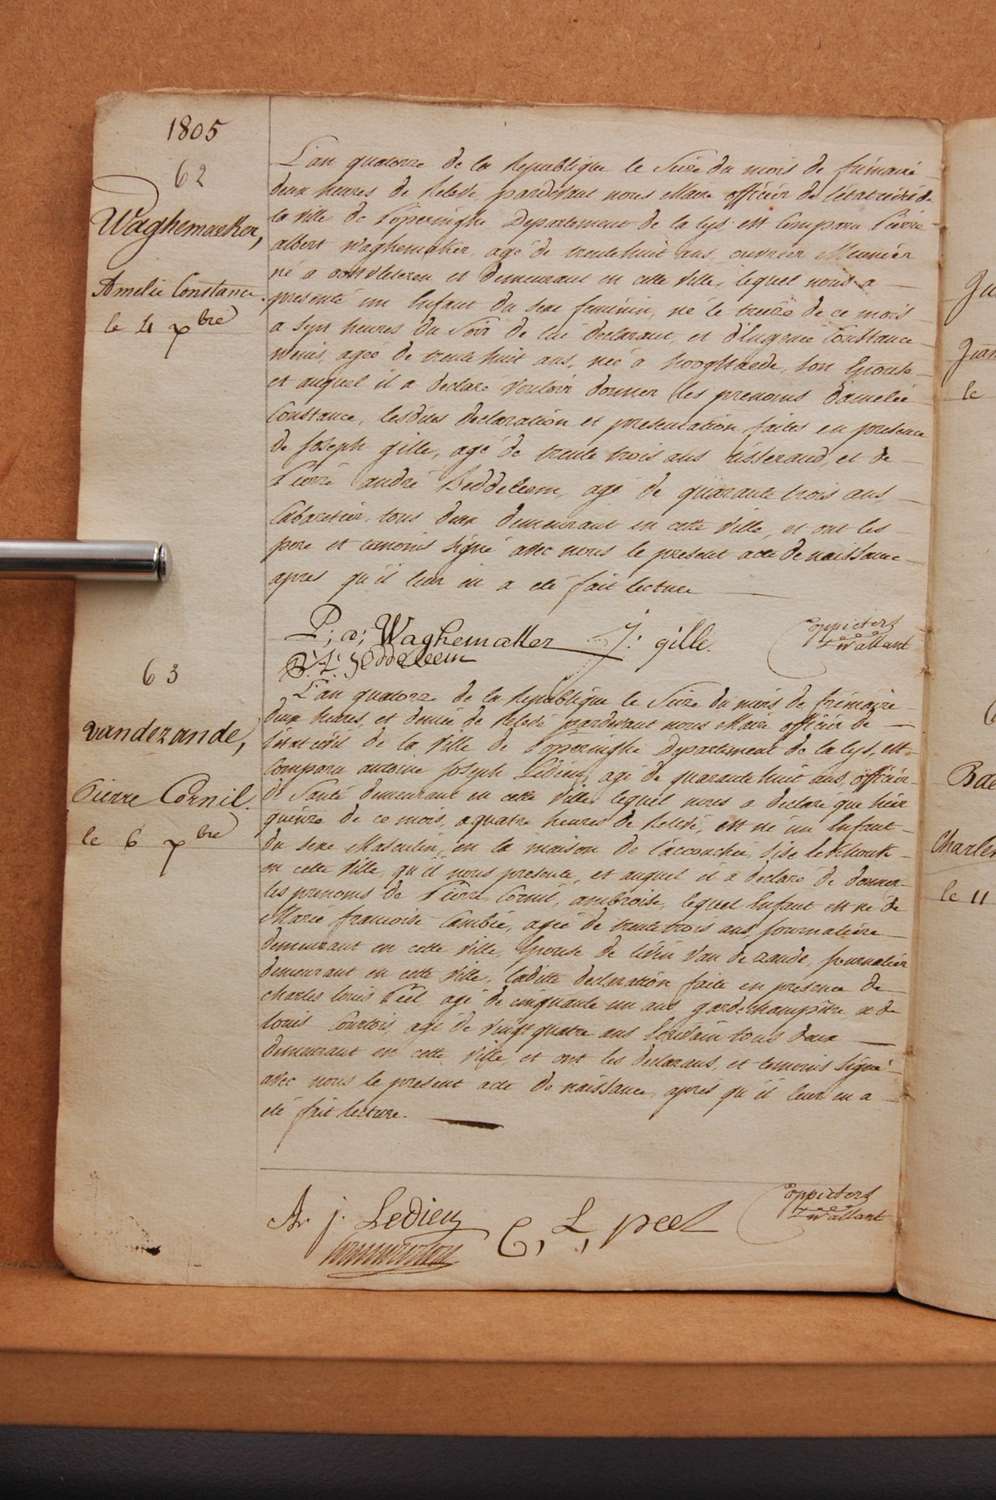 1805
62
Waghemaeker,
Amelie Constance.
le 4 xbre
L'an quatorze de la Republique le Seize du mois de frimaire
deux heures de Relevée pardevant nous Maire officier de l'état civil de
la ville de Poperinghe Departement de la Lys est comparu Pierre
albert Waghemaker, agé de trente huit ans, ouvrier Meunier
né a et demeurant en cette Ville, lequel nous a
presenté un Enfant du sexe feminin, né le treize de ce mois
a sept heures du Soir de lui declarant et d'Eugenie Constance
agée de trente huit ans, née a Hooghlede, son Epouse
et auquel il a declaré vouloir donner les prenoms d'amelie
Constance, lesdites declaration et presentation faites en presence
de Joseph gille, agé de trente trois ans tisserand, et de
Pierre andré Leddeleem, agé de quarante trois ans
Cabaretier, tous deux demeurant en cette Ville, et ont les
pere et temoins Signé avec nous le present acte de naissance
apres qu'il leur en a eté fait lecture
P: a: Waghemakker J: gille.
63
vandezande,
Pierre Cornil.
le 6 xbre
L'an quatorze de la Republique le Seize du mois de frimaire
deux heures, et demie de Relevé pardevant nous Maire officier de
l'état civil de la Ville de Poperinghe Departement de la Lys, est
Comparu antoine Joseph Ledieu, agé de quarante huit ans, officier
de Santé demeurant en cette Ville, lequel nous a declaré que hier
quinze de ce mois, a quatre heures de Relevé, est né un Enfant
du sexe Masculin, en la maison de l'accouchée, Sise
en cette Ville, qu'il nous presente, et auquel il a declaré de donner
les prenoms de Pierre Cornil, ambroise, lequel Enfant est né de
Marie francoise Cambie, agée de trente trois ans, Journaliere
demeurant en cette Ville, Epouse de Van de Zande, journalier
demeurant en cette Ville, Ladite declaration faite en presence de
charles louis Peel agé de cinquante un ans gardechampètre et de
louis Courtois, agé de vingt quatre ans tous deux
demeurant en cette Ville et ont les declarans, et temoins Signé
avec nous le present acte de naissance, après qu'il leur en a
eté fait lecture.
A. j. Ledieu C, L, peel
le
Charles
le 11